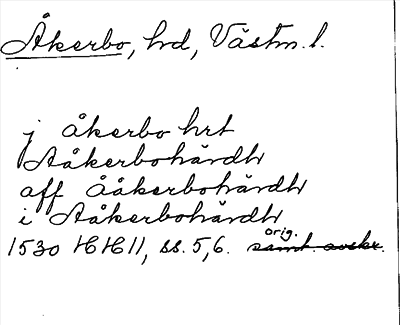 Åkerbo, hd, Västm. l.
j åkerbo hrt
i Aåkerbohärdh
aff Ååkerbohärdh
i Aåkerbohärdh
1530 HH II, ss. 5,6. orig. samt. avskr.